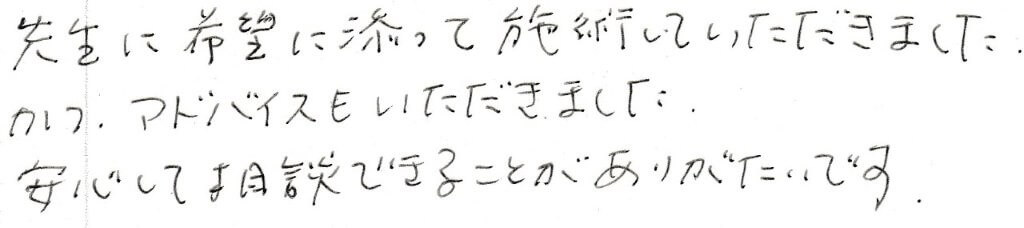 先生に希望に添って施術していただきました.
かつ、アドバイスもいただきました.
安心して相談できることがありがたいです.